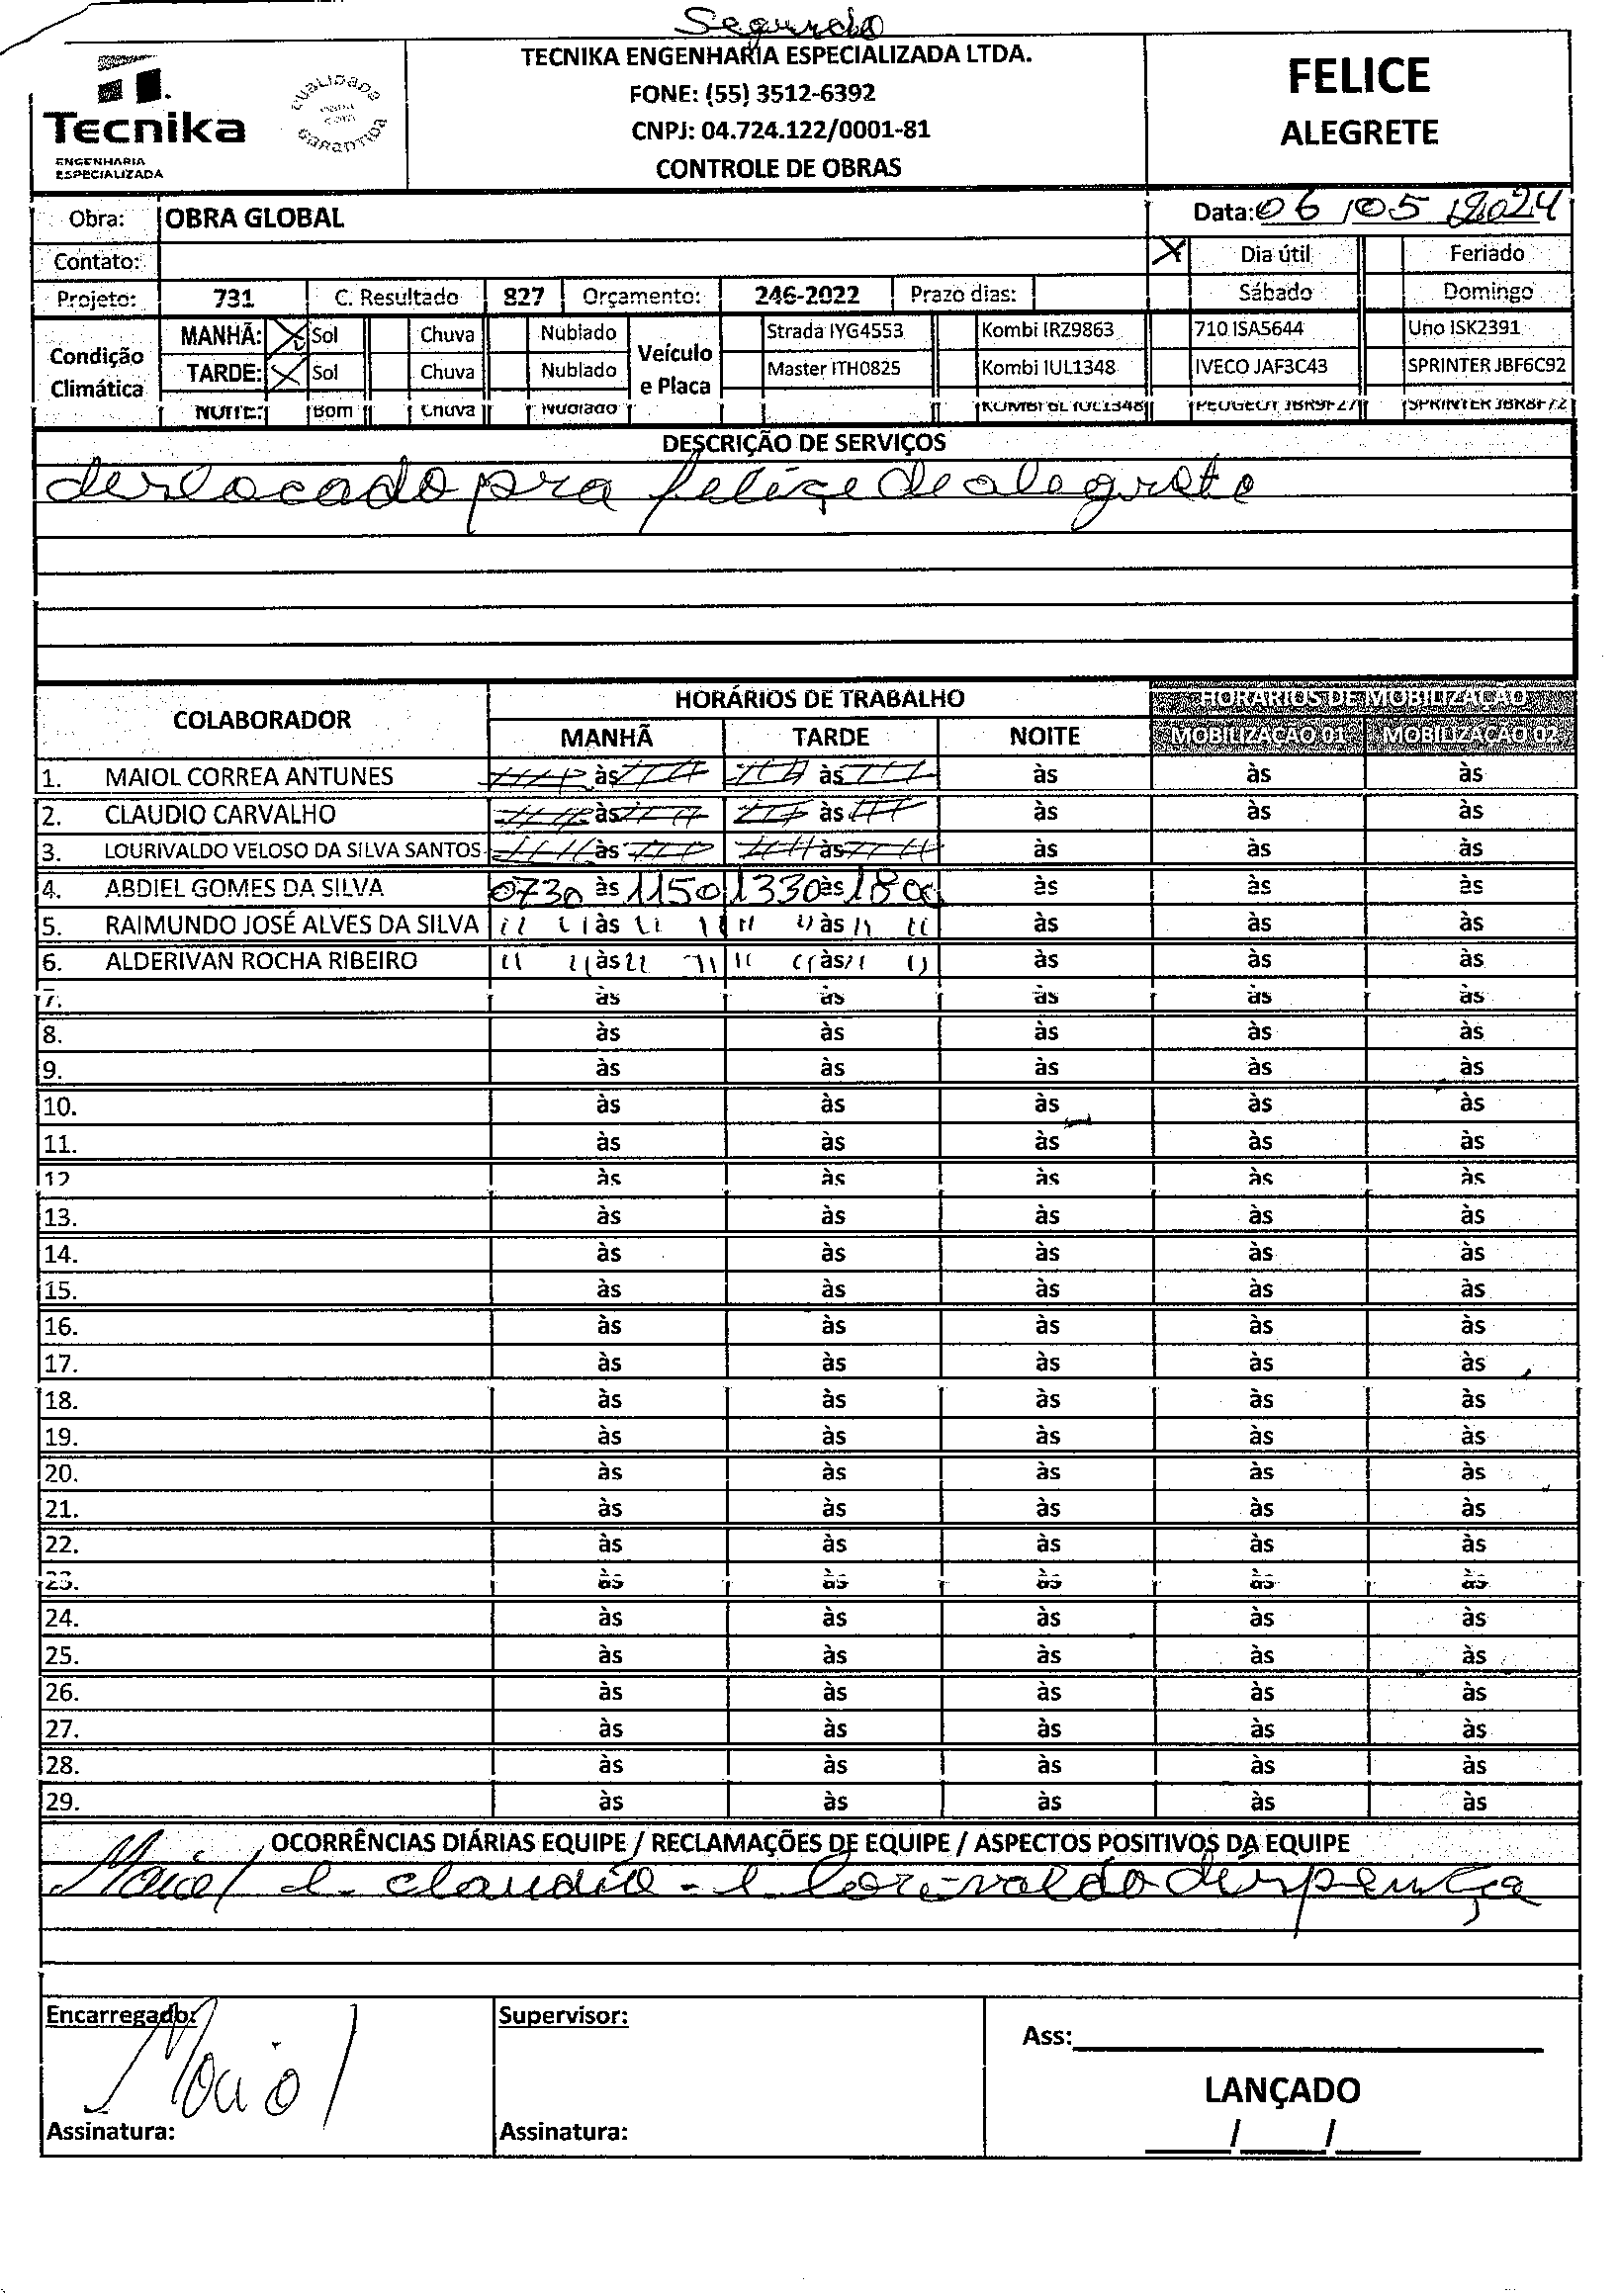 Segunda
Tecnika
ENGENHARIA
ESPECIALIZADA
QUALIDADE
COM
GARANTIDA
TECNIKA ENGENHARIA ESPECIALIZADA LTDA.
FONE: (55) 3512-6392
CNPJ: 04.724.122/0001-81
CONTROLE DE OBRAS
FELICE
ALEGRETE
Obra: OBRA GLOBAL Data: 06/05/2024
Contato: X Dia útil Feriado
Projeto: 731 C. Resultado 827 Orçamento: 246-2022 Prazo dias: Sábado Domingo
Condição Climática
MANHÃ: X Sol Chuva Nublado
TARDE: X Sol Chuva Nublado
NOITE: Bom Chuva Nublado
Veículo e Placa
Strada IYG4553 Kombi IRZ9863 710 ISA5644 Uno ISK2391
Master ITH0825 Kombi IUL1348 IVECO JAF3C43 SPRINTER JBF6C92
KOMBI 6L IUL1348 PEUGEOT JBR9F27 SPRINTER JBR8F72
DESCRIÇÃO DE SERVIÇOS
deslocado pra felice de alegrete
COLABORADOR HORÁRIOS DE TRABALHO HORÁRIOS DE MOBILIZAÇÃO
MANHÃ TARDE NOITE MOBILIZAÇÃO 01 MOBILIZAÇÃO 02
1. MAIOL CORREA ANTUNES às às às às às
2. CLAUDIO CARVALHO às às às às às
3. LOURIVALDO VELOSO DA SILVA SANTOS às às às às às
4. ABDIEL GOMES DA SILVA 0730 às 1150 1330 às 1800 às às às
5. RAIMUNDO JOSÉ ALVES DA SILVA " " às " " " " às " " às às às
6. ALDERIVAN ROCHA RIBEIRO " " às " " " " às " " às às às
7. às às às às às
8. às às às às às
9. às às às às às
10. às às às às às
11. às às às às às
12 às às às às às
13. às às às às às
14. às às às às às
15. às às às às às
16. às às às às às
17. às às às às às
18. às às às às às
19. às às às às às
20. às às às às às
21. às às às às às
22. às às às às às
23. às às às às às
24. às às às às às
25. às às às às às
26. às às às às às
27. às às às às às
28. às às às às às
29. às às às às às
OCORRÊNCIAS DIÁRIAS EQUIPE / RECLAMAÇÕES DE EQUIPE / ASPECTOS POSITIVOS DA EQUIPE
Maiol e claudio - e lorivaldo dispença
Encarregado: Supervisor:
Maiol
Ass:
LANÇADO
Assinatura: Assinatura: / /